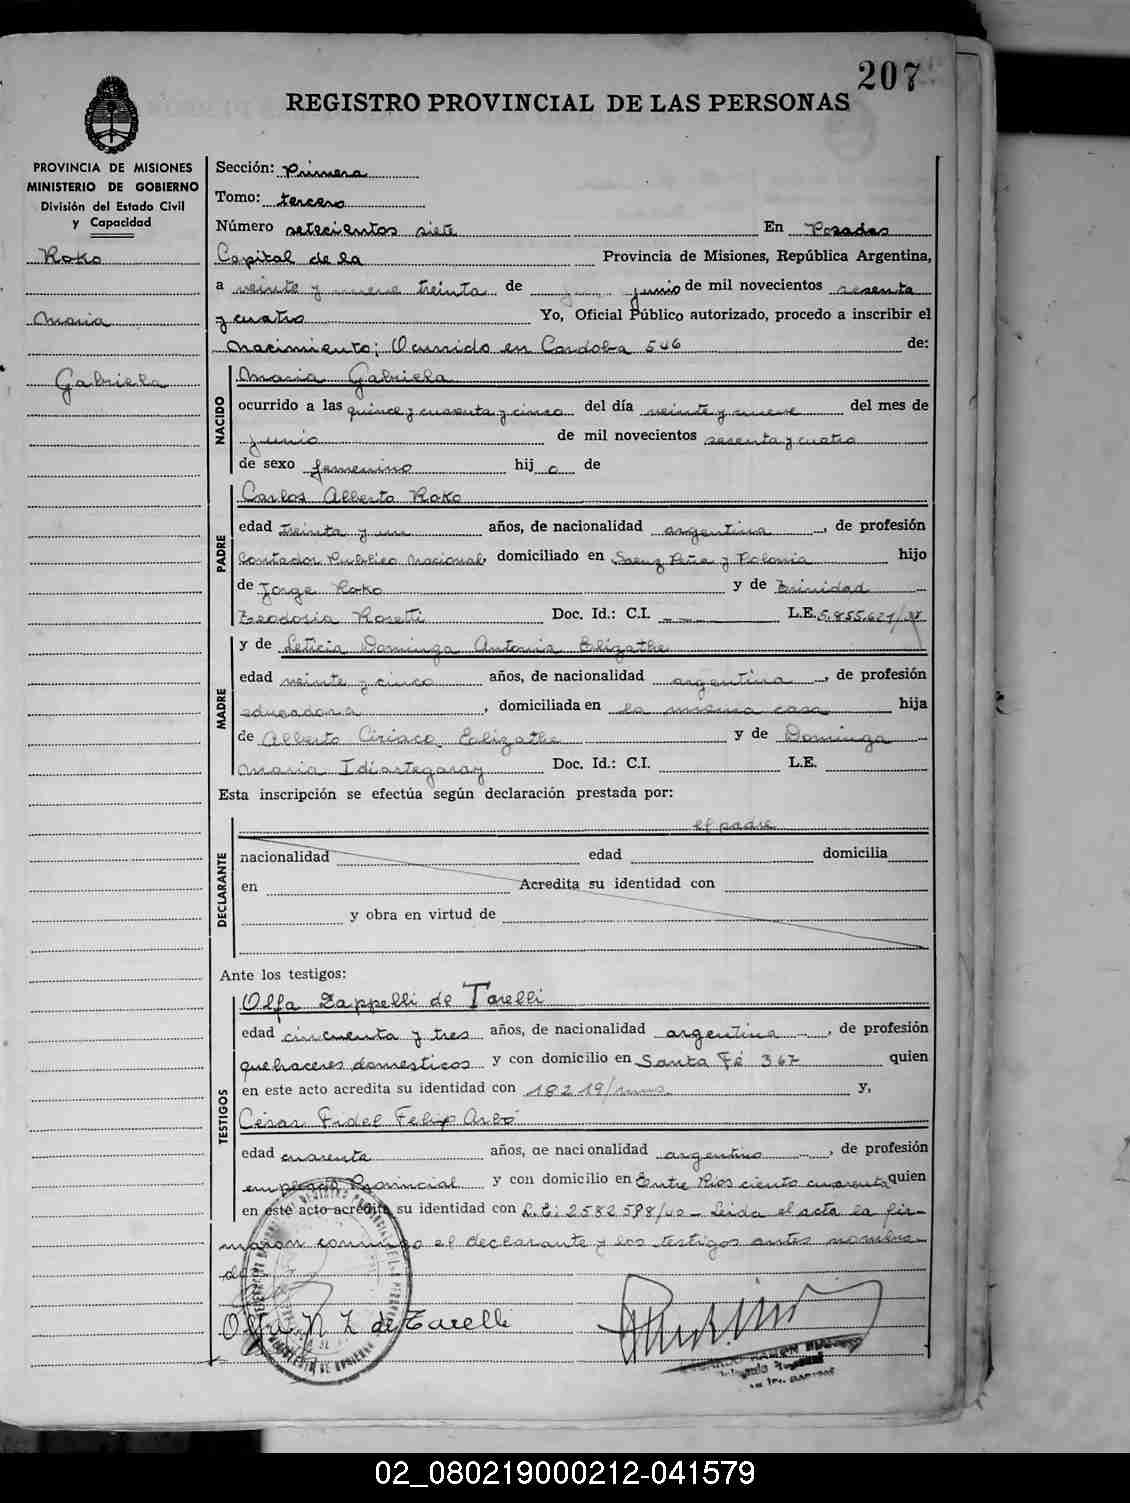 207
REGISTRO PROVINCIAL DE LAS PERSONAS
PROVINCIA DE MISIONES
MINISTERIO DE GOBIERNO
División del Estado Civil
y Capacidad
Roko
Maria
Gabriela
Sección: Primera
Tomo: tercero
Número setecientos siete En Posadas
Capital de la Provincia de Misiones, República Argentina,
a veinte y nueve treinta de junio de mil novecientos sesenta
y cuatro Yo, Oficial Público autorizado, procedo a inscribir el
nacimiento; Ocurrido en Cordoba 546 de:
NACIDO
Maria Gabriela
ocurrido a las quince y cuarenta y cinco del día veinte y nueve del mes de
junio de mil novecientos sesenta y cuatro
de sexo femenino hij a de
PADRE
Carlos Alberto Roko
edad treinta y un años, de nacionalidad argentina, de profesión
Contador Publico Nacional, domiciliado en Saenz Peña y Polonia hijo
de Jorge Roko y de Trinidad
Teodosia Rosetti Doc. Id.: C.I. L.E. 5.855.621/
MADRE
y de Leticia Dominga Antonia Elizathe
edad veinte y cinco años, de nacionalidad argentina, de profesión
educadora, domiciliada en la misma casa hija
de Alberto Ciriaco Elizathe y de Dominga
Maria Idiartegaray Doc. Id.: C.I. L.E.
Esta inscripción se efectúa según declaración prestada por:
DECLARANTE
el padre
nacionalidad edad domicilia
en Acredita su identidad con
y obra en virtud de
Ante los testigos:
TESTIGOS
Olfa Zappelli de Tarelli
edad cincuenta y tres años, de nacionalidad argentina, de profesión
quehaceres domesticos y con domicilio en Santa Fé 367 quien
en este acto acredita su identidad con 18219/ y,
César Fidel Felip Arbó
edad cuarenta años, de nacionalidad argentino, de profesión
empleado Provincial y con domicilio en Entre Rios ciento cuarenta quien
en este acto acredita su identidad con L.E: 2582598/40 - Leida el acta la fir-
maron conmigo el declarante y los testigos antes nombra-
do
Olfa N Z de Tarelli
02_080219000212-041579